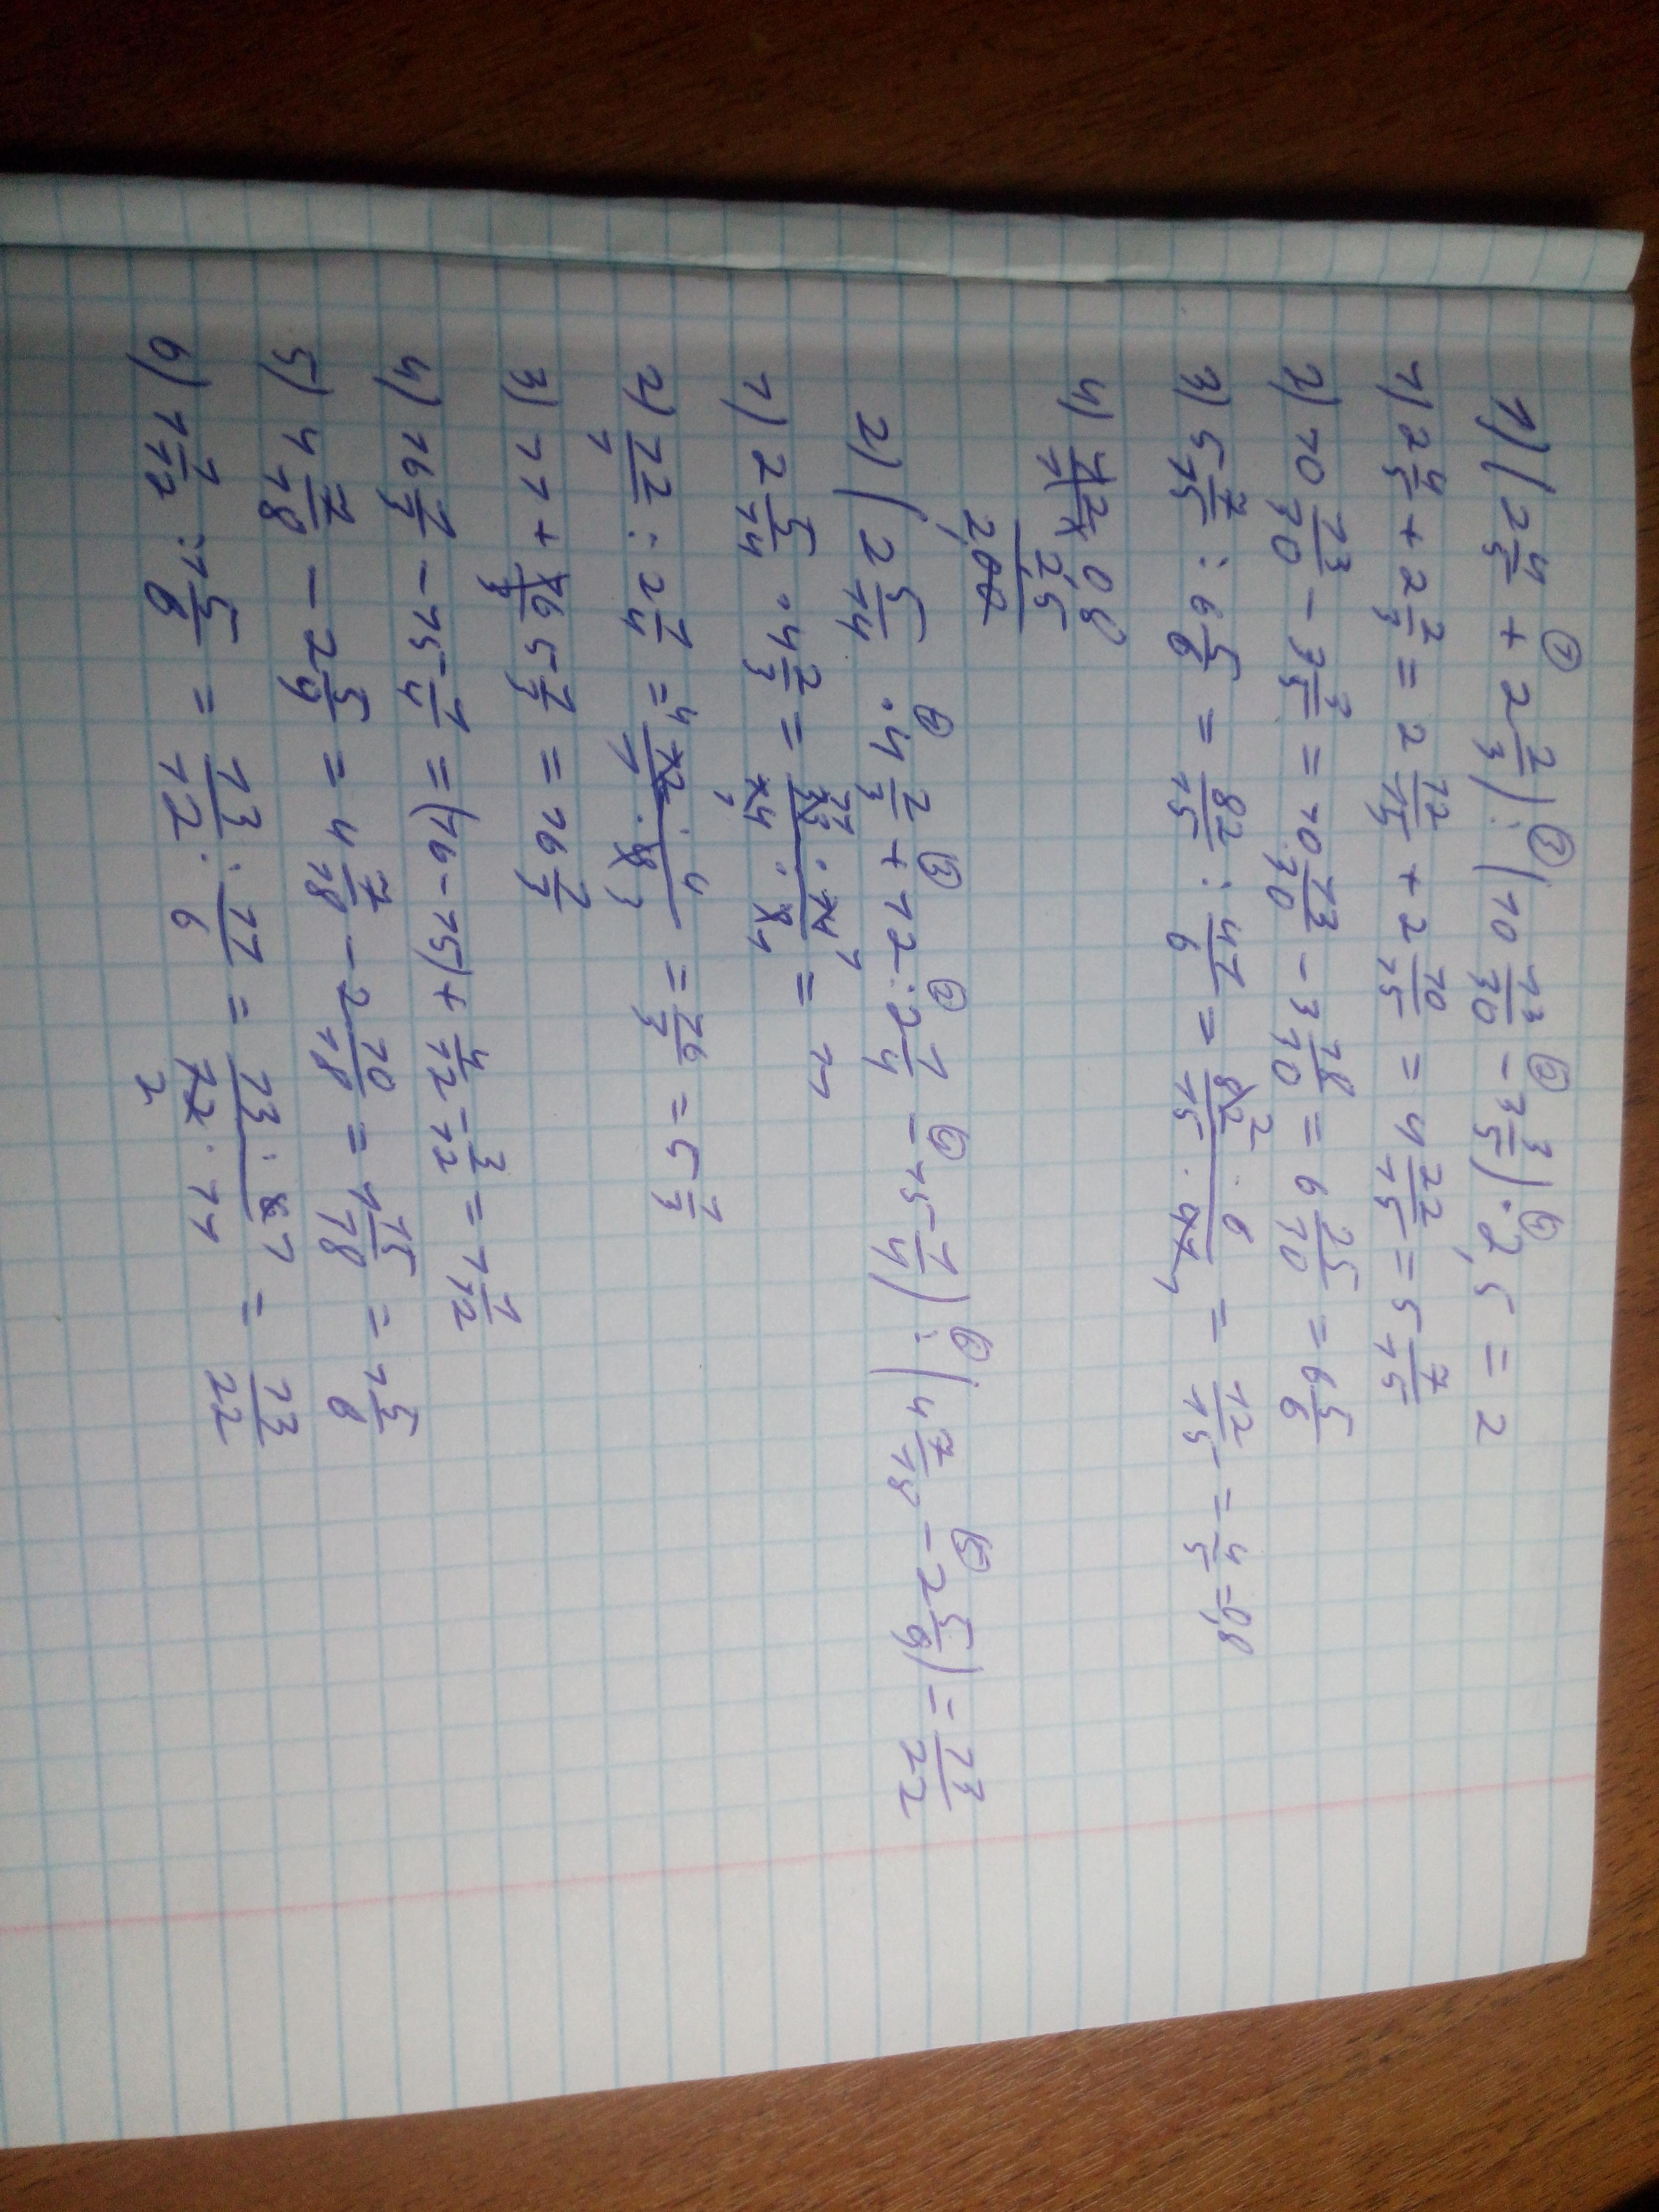 1) (2 4/5 + 2 2/3) : (10 13/30 − 3 3/5) · 2,5 = 2
1) 2 4/5 + 2 2/3 = 2 12/15 + 2 10/15 = 4 22/15 = 5 7/15
2) 10 13/30 − 3 3/5 = 10 13/30 − 3 18/30 = 6 25/30 = 6 5/6
3) 5 7/15 : 6 5/6 = 82/15 : 41/6 = 82 · 6 / 15 · 41 = 12/15 = 4/5 = 0,8
4) 0,8
2,5
2,00
2) (2 5/14 · 4 2/3 + 12 : 2 1/4 − 15 1/4) : (4 7/18 − 2 5/9) = 13/22
1) 2 5/14 · 4 2/3 = 33 · 14 / 14 · 3 = 11
2) 12/1 : 2 1/4 = 12 · 4 / 1 · 9 = 16/3 = 5 1/3
3) 11 + 5 1/3 = 16 1/3
4) 16 1/3 − 15 1/4 = (16 − 15) + 4/12 − 3/12 = 1 1/12
5) 4 7/18 − 2 5/9 = 4 7/18 − 2 10/18 = 1 15/18 = 1 5/6
6) 1 1/12 : 1 5/6 = 13/12 : 11/6 = 13 · 6 / 12 · 11 = 13/22